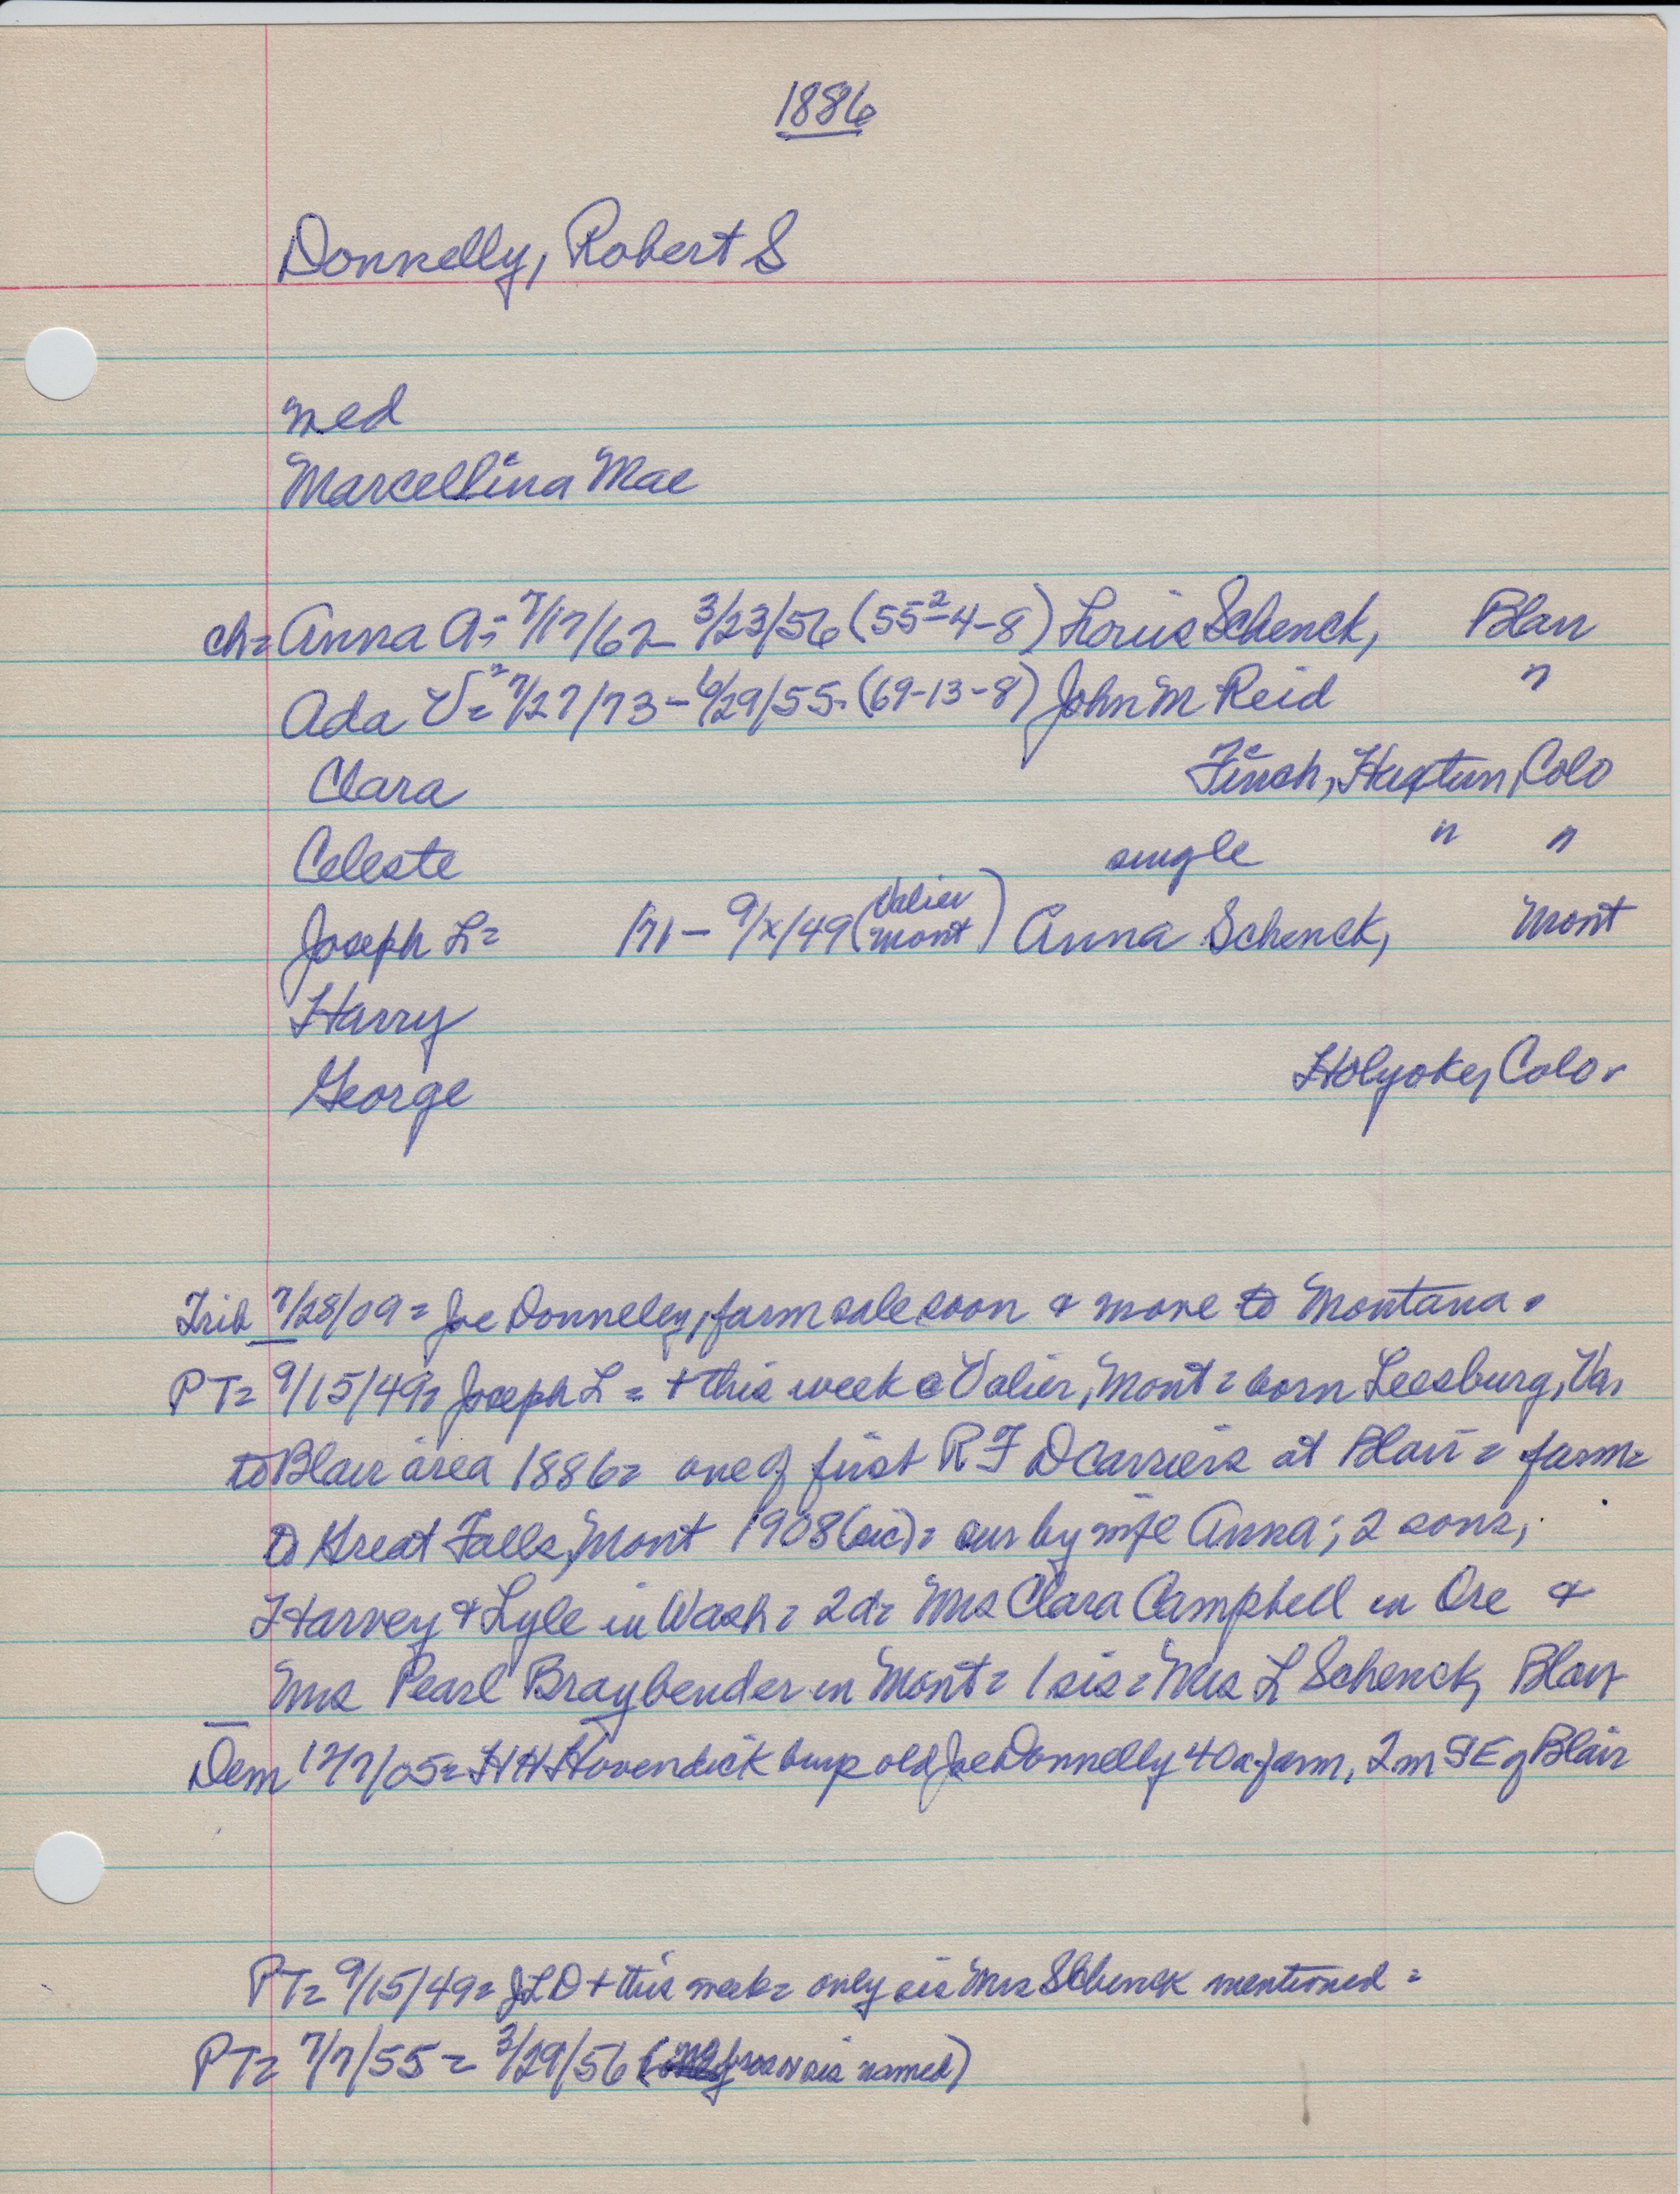 1886
Donnelly, Robert S
med
Marcellina Mae
ch= Anna A= 7/17/62 - 3/23/56 (55²-4-8) Louis Schenck, Blair
Ada V= 7/27/73 - 6/29/55. (69-13-8) John M Reid "
Clara Finch, Haxtun, Colo
Celeste single " "
Joseph L= /71 - 9/x/49 (Valier Mont) Anna Schenck, Mont
Harry
George Holyoke, Colo.
Trib 7/28/09= Joe Donneley, farm sale soon & move to Montana.
PT= 9/15/49= Joseph L = + this week @ Valier, Mont = born Leesburg, Va,
to Blair area 1886= one of first R F D carriers at Blair = farm=
to Great Falls, Mont 1908 (sic)= sur by wife Anna; 2 sons,
Harvey & Lyle in Wash= 2 d= Mrs Clara Campbell in Ore &
Mrs Pearl Braybender in Mont= 1 sis= Mrs L Schenck, Blair
Dem 12/7/05= H H Hovendick buys old Joe Donnelly 40 a farm, 2 m SE of Blair
PT= 9/15/49= JLD + this week= only sis Mrs Schenck mentioned =
PT= 7/7/55 = 3/29/56 (no bros or sis named)